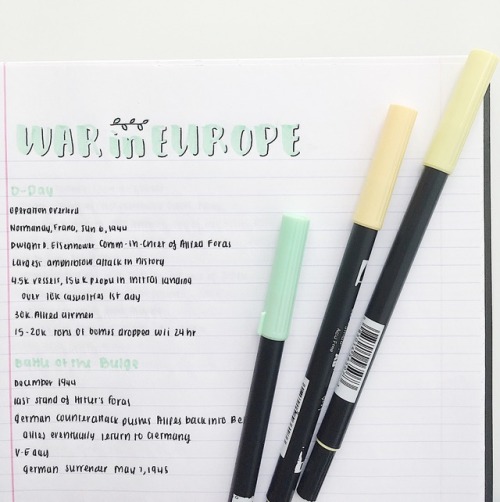 WAR in EUROPE
D-Day
Operation Overlord
Normandy, France, Jun 6, 1944
Dwight D. Eisenhower Comm-in-Chief of Allied Forces
Largest amphibious attack in history
4.5k vessels, 156k people in initial landing
over 10k casualties 1st day
30k Allied airmen
15-20k tons of bombs dropped w/i 24hr
Battle of the Bulge
December 1944
last stand of Hitler's forces
German counterattack pushes Allies back into Be
allies eventually return to Germany
V-E day
German surrender May 7, 1945